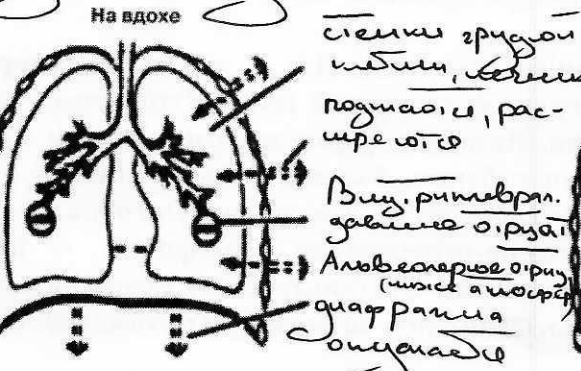 На вдохе
стенки грудной
клетки,
поднимаются, рас-
ширяются
Внутриплеврал.
давление отрицат
Альвеолярное отриц
(ниже атмосфер
диафрагма
опускается